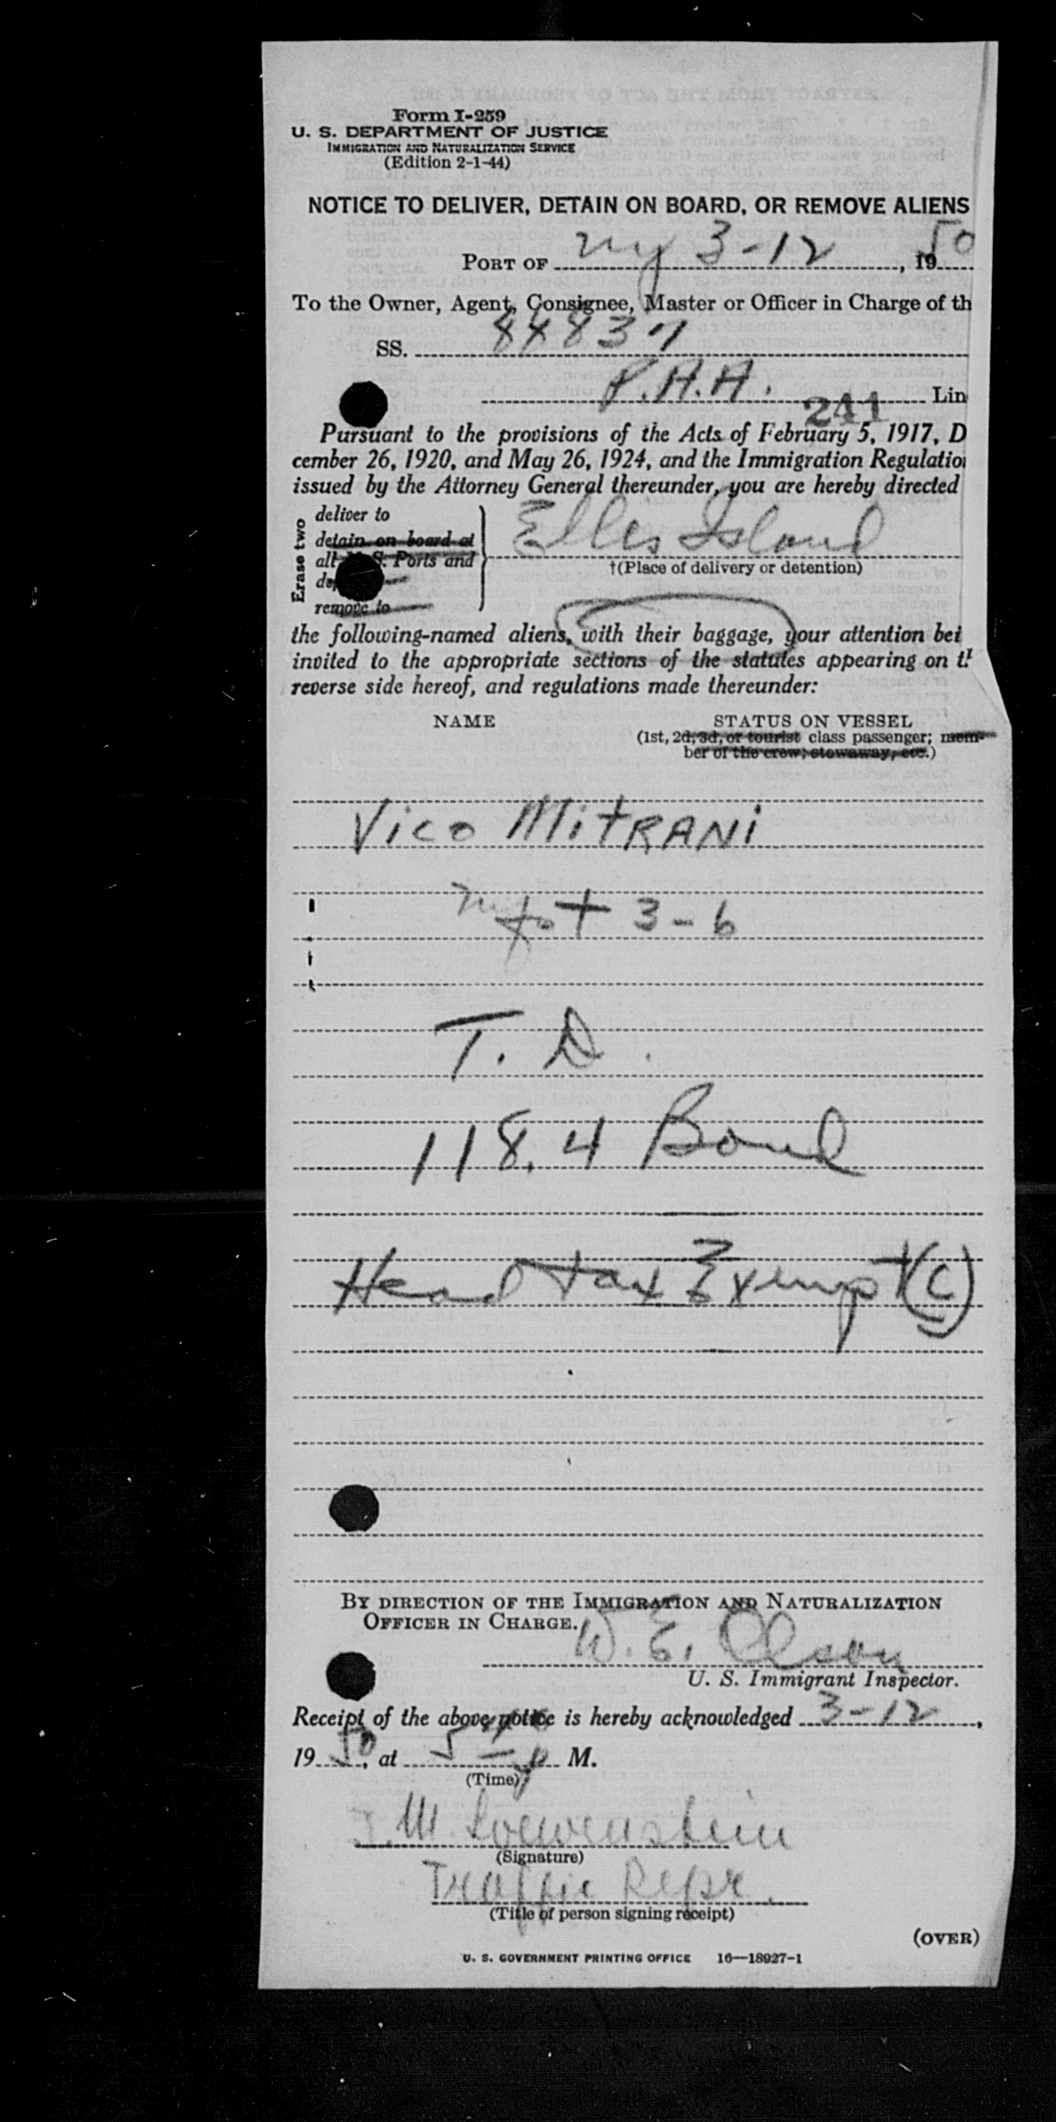 Form I-259
U. S. DEPARTMENT OF JUSTICE
IMMIGRATION AND NATURALIZATION SERVICE
(Edition 2-1-44)
NOTICE TO DELIVER, DETAIN ON BOARD, OR REMOVE ALIENS
PORT OF ny 3-12, 1950
To the Owner, Agent, Consignee, Master or Officer in Charge of th
SS. 88837
P.A.A. Lin
241
Pursuant to the provisions of the Acts of February 5, 1917, D
cember 26, 1920, and May 26, 1924, and the Immigration Regulatio
issued by the Attorney General thereunder, you are hereby directed
Erase two
deliver to
detain on board at
all U. S. Ports and
remove to
Elles Island
†(Place of delivery or detention)
the following-named aliens, with their baggage, your attention bei
invited to the appropriate sections of the statutes appearing on t
reverse side hereof, and regulations made thereunder:
NAME STATUS ON VESSEL
(1st, 2d, 3d, or tourist class passenger; mem-
ber of the crew; stowaway, etc.)
Vico MitRANi
3-6
T. D.
118.4 Bond
Head tax Exempt (C)
BY DIRECTION OF THE IMMIGRATION AND NATURALIZATION
OFFICER IN CHARGE.
W. E. Olson
U. S. Immigrant Inspector.
Receipt of the above notice is hereby acknowledged 3-12,
1950, at 5 — p M.
(Time)
J. W. Loewenstein
(Signature)
Traffic Repr.
(Title of person signing receipt)
(OVER)
U. S. GOVERNMENT PRINTING OFFICE 16—18927-1